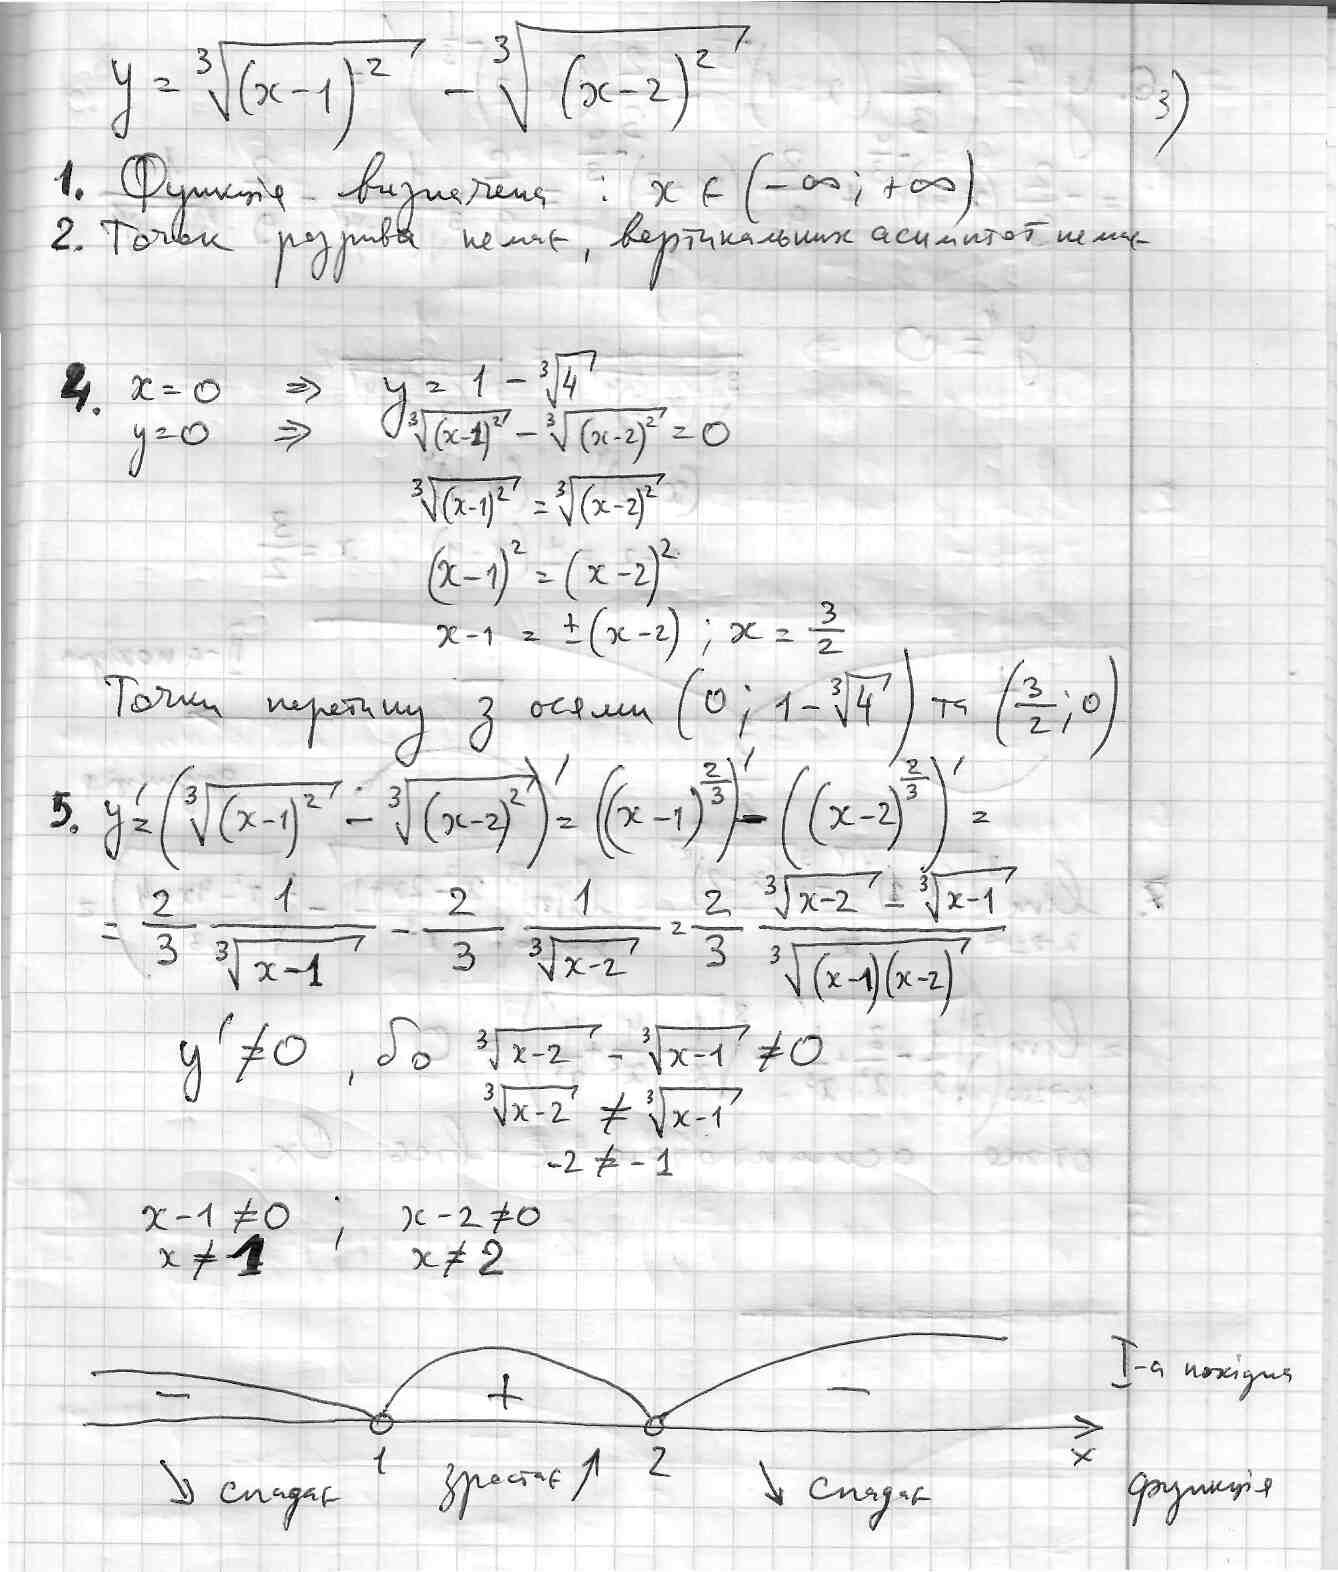 y = ∛(x-1)² - ∛(x-2)²
3)
1. Функція визначена : x ∈ (-∞; +∞)
2. Точок розрива немає, вертикальних асимптот немає
4. x=0 ⇒ y = 1 - ∛4
y=0 ⇒ ∛(x-1)² - ∛(x-2)² = 0
∛(x-1)² = ∛(x-2)²
(x-1)² = (x-2)²
x-1 = ±(x-2) ; x = 3/2
Точки перетину з осями (0; 1-∛4) та (3/2; 0)
5. y' = (∛(x-1)² - ∛(x-2)²)' = ((x-1)^(2/3))' - ((x-2)^(2/3))' =
= 2/3 1/∛(x-1) - 2/3 1/∛(x-2) = 2/3 (∛(x-2) - ∛(x-1))/∛((x-1)(x-2))
y' ≠ 0, бо ∛(x-2) - ∛(x-1) ≠ 0
∛(x-2) ≠ ∛(x-1)
-2 ≠ -1
x-1 ≠ 0 ; x-2 ≠ 0
x ≠ 1 x ≠ 2
- + - I-а похідна
1 2 x
↘ спадає зростає ↗ ↘ спадає функція